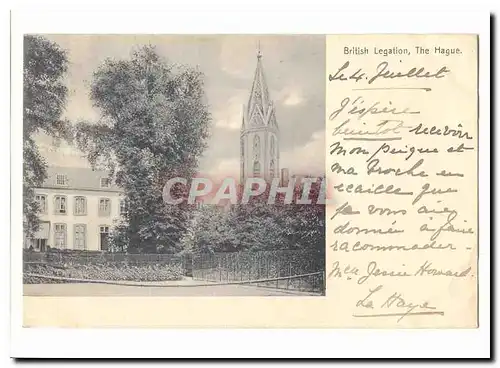 British Legation, The Hague.
Le 4. Juillet
J'éspère
bientot recevoir
Mon Peigne et
ma Broche en
écaille que
je vous ai
donnée a faire
racommoder.
Jessie Howard.
La Haye
CPAPHIL